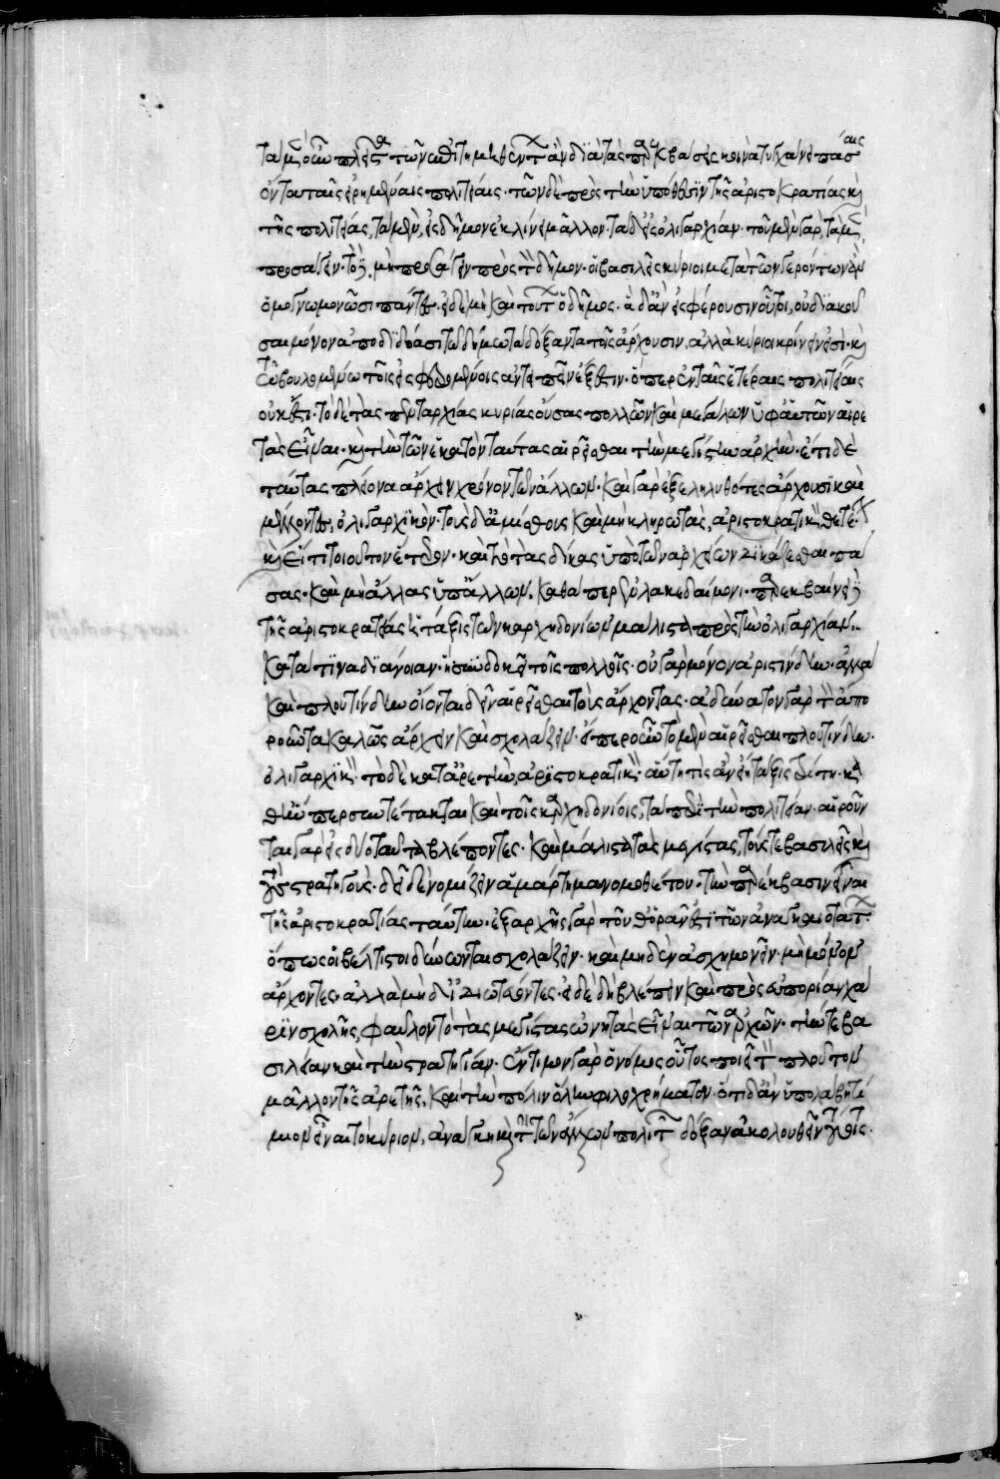 τὰ μὲν οὖν πλεῖστα τῶν ἐπιτιμηθέντων ἂν διὰ τὰς παρεκβάσεις κοινὰ τυγχάνει πάσαις
ὄντα ταῖς εἰρημέναις πολιτείαις· τῶν δὲ πρὸς τὴν ὑπόθεσιν τῆς ἀριστοκρατίας καὶ
τῆς πολιτείας, τὰ μὲν, εἰς δῆμον ἐκκλίνει μᾶλλον· τὰ δ' εἰς ὀλιγαρχίαν· τοῦ μὲν γὰρ, τὰ μὲν
προσάγειν· τὰ δὲ, μὴ προσάγειν πρὸς τὸν δῆμον· οἱ βασιλεῖς κύριοι μετὰ τῶν γερόντων ἂν
ὁμογνωμονῶσι πάντες· εἰ δὲ μὴ καὶ τούτων ὁ δῆμος· ἃ δ' ἂν εἰσφέρουσιν οὗτοι, οὐ διακοῦ
σαι μόνον ἀποδιδόασι τῷ δήμῳ τὰ δόξαντα τοῖς ἄρχουσιν, ἀλλὰ κύριοι κρίνειν εἰσὶ· καὶ
τῷ βουλομένῳ τοῖς εἰσφερομένοις ἀντειπεῖν ἔξεστιν· ὅπερ ἐν ταῖς ἑτέραις πολιτείαις
οὐκ ἔστι· τὸ δὲ τὰς πενταρχίας κυρίας οὔσας πολλῶν καὶ μεγάλων ὑφ' αὑτῶν αἱρε
τὰς εἶναι· καὶ τὴν τῶν ἑκατὸν ταύτας αἱρεῖσθαι τὴν μεγίστην ἀρχὴν· ἔτι δὲ
ταύτας πλείονα ἄρχειν χρόνον τῶν ἄλλων· καὶ γὰρ ἐξεληλυθότες ἄρχουσι καὶ
μέλλοντες, ὀλιγαρχικὸν· τὸ δ' ἀμίσθους καὶ μὴ κληρωτὰς, ἀριστοκρατικὸν θετέον
καὶ εἴ τι τοιοῦτον ἕτερον· καὶ τὸ τὰς δίκας ὑπὸ τῶν ἀρχείων δικάζεσθαι πά
σας· καὶ μὴ ἄλλας ὑπ' ἄλλων, καθάπερ ἐν λακεδαίμονι· παρεκβαίνει δὲ
τῆς ἀριστοκρατίας ἡ τάξις τῶν καρχηδονίων μάλιστα πρὸς τὴν ὀλιγαρχίαν,
κατά τινα διάνοιαν· ἣ συνδοκεῖ τοῖς πολλοῖς· οὐ γὰρ μόνον ἀριστίνδην· ἀλλὰ
καὶ πλουτίνδην οἴονται δεῖν αἱρεῖσθαι τοὺς ἄρχοντας· ἀδύνατον γὰρ τὸν ἀπο
ροῦντα καλῶς ἄρχειν καὶ σχολάζειν· εἴπερ οὖν τὸ μὲν αἱρεῖσθαι πλουτίνδην·
ὀλιγαρχικὸν· τὸ δὲ κατ' ἀρετὴν, ἀριστοκρατικὸν· αὕτη τις ἂν εἴη τάξις τρίτη· καθ'
ἣν ὥπερ συντέτακται καὶ τοῖς καρχηδονίοις, τὰ περὶ τὴν πολιτείαν· αἱροῦν
ται γὰρ εἰς δύο ταῦτα βλέποντες· καὶ μάλιστα τὰς μεγίστας, τούς τε βασιλεῖς καὶ
τοὺς στρατηγούς· δεῖ δὲ νομίζειν ἁμάρτημα νομοθέτου· τὴν παρέκβασιν εἶναι
τῆς ἀριστοκρατίας ταύτην· ἐξ ἀρχῆς γὰρ τοῦθ' ὁρᾶν ἐστὶ τῶν ἀναγκαιοτάτων·
ὅπως οἱ βέλτιστοι δύνωνται σχολάζειν· καὶ μηδὲν ἀσχημονεῖν· μὴ μόνον
ἄρχοντες· ἀλλὰ μηδ' ἰδιωτεύοντες· εἰ δὲ δεῖ βλέπειν καὶ πρὸς εὐπορίαν χά
ριν σχολῆς, φαῦλον τὸ τὰς μεγίστας ὠνητὰς εἶναι τῶν ἀρχῶν· τήν τε βα
σιλείαν καὶ τὴν στρατηγίαν· ἔντιμον γὰρ ὁ νόμος οὗτος ποιεῖ τὸν πλοῦτον
μᾶλλον τῆς ἀρετῆς, καὶ τὴν πόλιν ὅλην φιλοχρήματον· ὅ τι δ' ἂν ὑπολάβῃ τί
μιον εἶναι τὸ κύριον, ἀνάγκη καὶ τὴν τῶν ἄλλων πολιτῶν δόξαν ἀκολουθεῖν τούτοις·